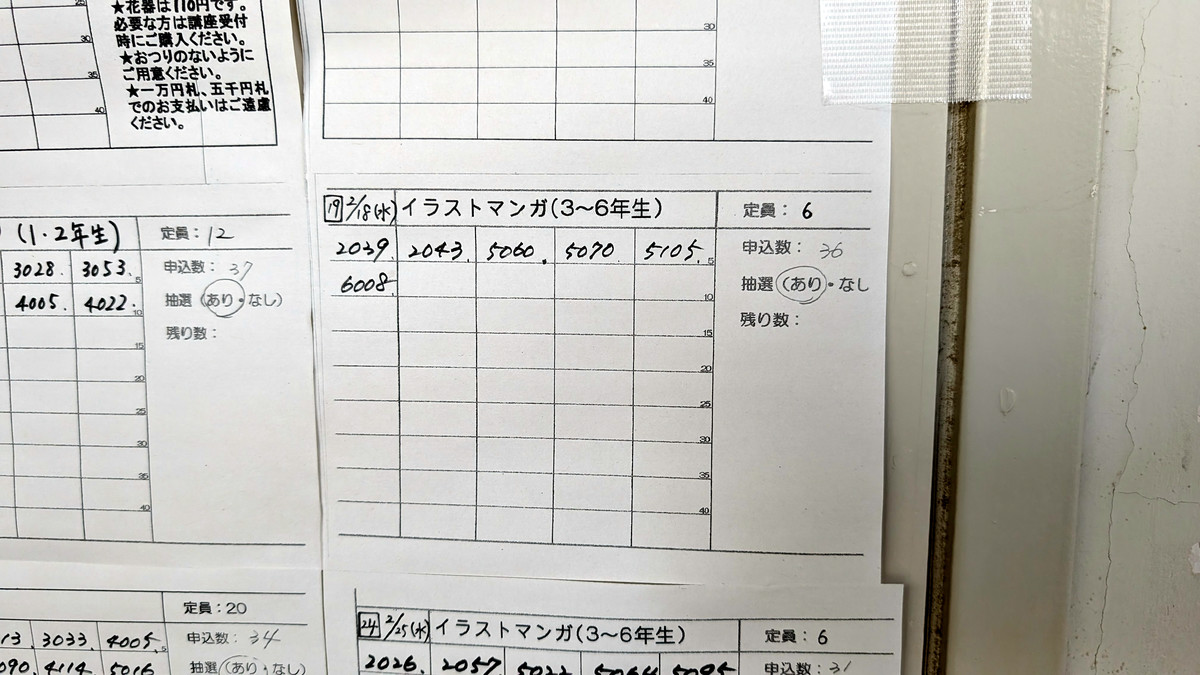 ★花器は110円です。
必要な方は講座受付
時にご購入ください。
★おつりのないように
ご用意ください。
★一万円札、五千円札
でのお支払いはご遠慮
ください。
25
30
35
40
30
35
40
(1・2年生) 定員：12
3028. 3053. 5 申込数：37
4005. 4022. 10 抽選(あり・なし)
残り数：
15
20
25
30
35
40
19 2/18(水) イラストマンガ(3～6年生) 定員：6
2039. 2043. 5060. 5070. 5105. 5 申込数：36
6008. 10 抽選(あり・なし
残り数：
15
20
25
30
35
40
定員：20
13. 3033. 4005. 5 申込数：34
090. 4114. 5016 抽選(あり・なし)
24 2/25(水) イラストマンガ(3～6年生) 定員：6
2026. 2057. 5095 申込数：31